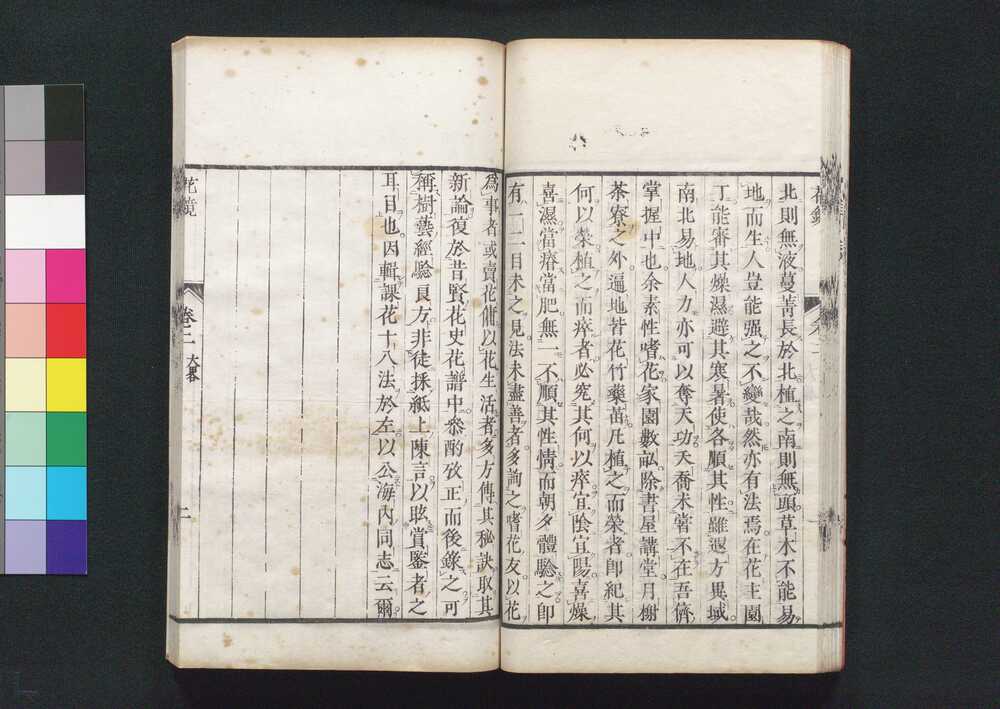 北則無液蔓菁長於北植之南則無頭草木不能易
地而生人豈能强之不變哉然亦有法焉在花主園
丁能審其燥濕避其寒暑使各順其性雖遐方異域
南北易地人力亦可以奪天功夭喬未甞不在吾儕
掌握中也余素性嗜花家園數畝除書屋講堂月榭
茶寮之外遍地皆花竹藥苗凡植之而榮者卽紀其
何以榮植之而瘁者必究其何以瘁宜陰宜陽喜燥
喜濕當瘠當肥無一不順其性情而朝夕體驗之卽
有一二目未之見法未盡善者多詢之嗜花友以花
為事者或賣花傭以花生活者多方傳其秘訣取其
新論復於昔賢花史花譜中叅酌攷正而後錄之可
稱樹藝經驗良方非徒採紙上陳言以眩賞鑒者之
耳目也因輯課花十八法於左以公海內同志云爾
花鏡
卷二
大畧
二